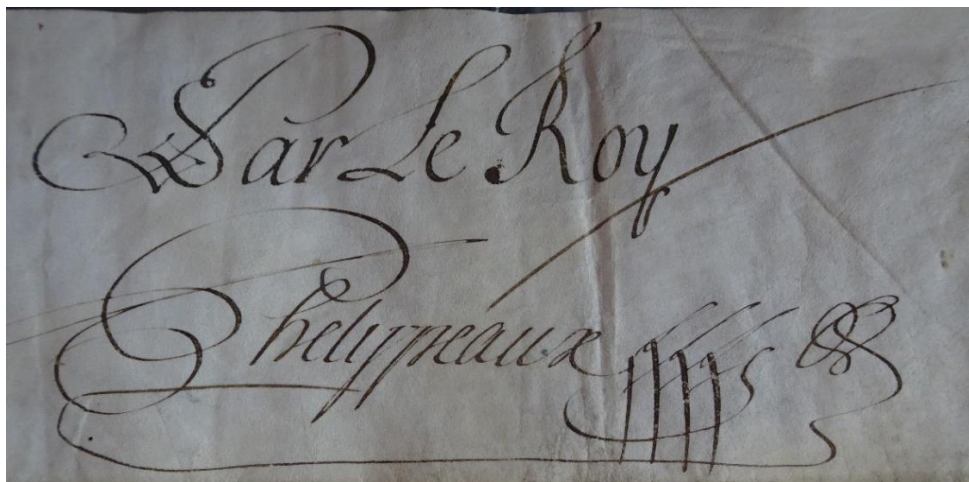 Par Le Roy
Phelypeaux